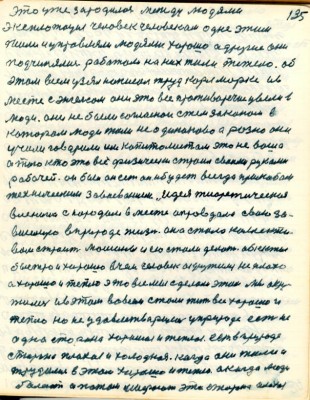 это уже зародилось между людями
эксплотация человек человекам одне этими
жили и управляли людями хорошо а другие они
подчинялись работали на них жили тяжело. об
этом всем узял написал труд карл маркс
вместе с энгельсом они это все противоречие ввели в
люди. они не были согласны с тем законом в
котором люди жили не одинаково а розно они
учили говорили им капитолистам это не ваша
а того кто это всё физически строил своими руками
рабочей. он был он есть он и будет всегда прикован
техническим завоеванием. идея теоретическая
Вленина с народом вместе оправдала свою за
висимую в природе жизнь. она стала коллекти
вом строить машины и ею стали делать
быстро и хорошо
а хорошо и тепло это все мы сделали этим. мы
жили и в этом во всем стали жить все хорошо и
тепло. но не удовлетворили у природе есть не
одна сторона хорошая и теплая. есть в природе
сторона плохая и холодная. когда они жили и
в этом хорошо и тепло. а когда люди
а потом это сторона плохая
135